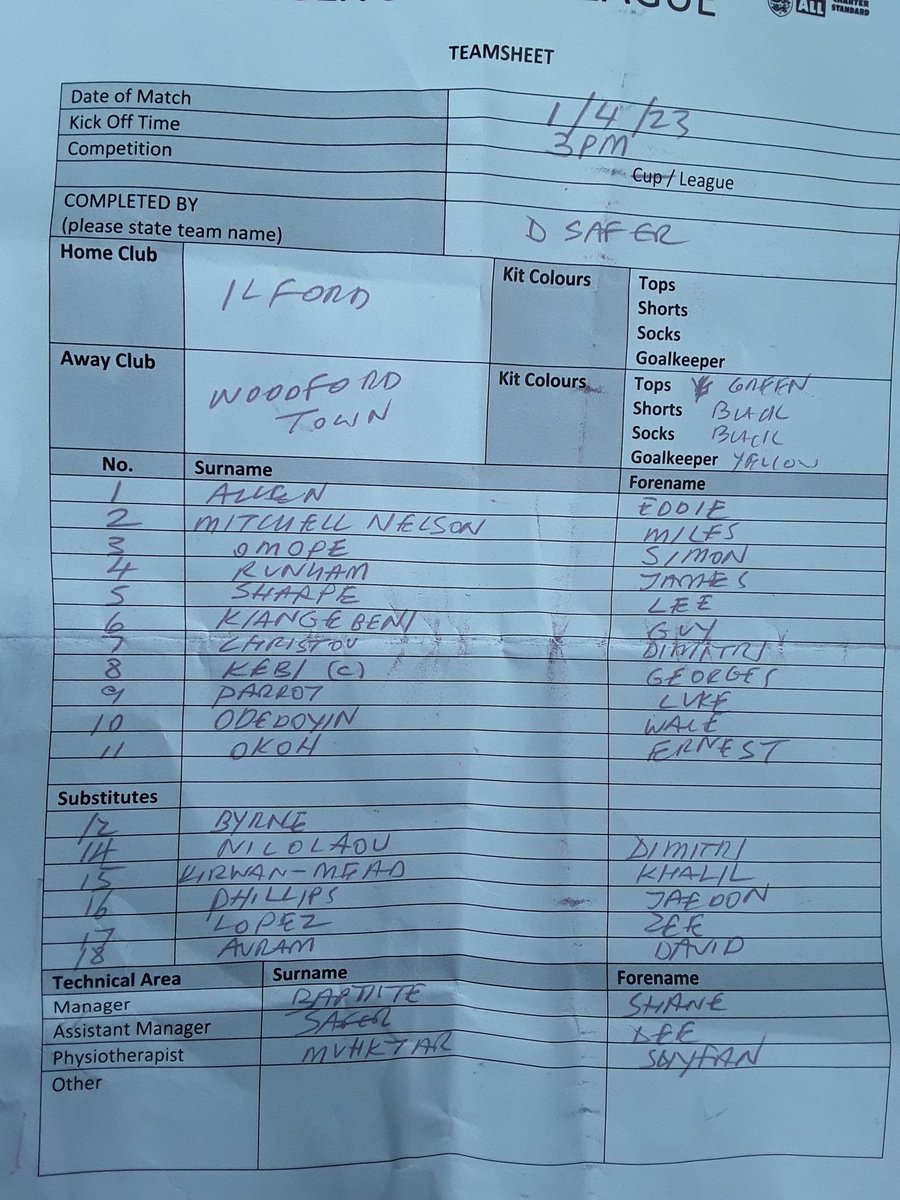 LEAGUE
ALL CHARTER STANDARD
TEAMSHEET
Date of Match 1/4/23
Kick Off Time 3PM
Competition
Cup / League
COMPLETED BY
(please state team name) D SAFER
Home Club ILFORD Kit Colours Tops
Shorts
Socks
Goalkeeper
Away Club WOODFORD TOWN Kit Colours Tops GREEN
Shorts BLACK
Socks BLACK
Goalkeeper YELLOW
No. Surname Forename
1 ALLEN EDDIE
2 MITCHELL NELSON MILES
3 OMOPE SIMON
4 RUNHAM JAMES
5 SHARPE LEE
6 KIANGEBENI GUY
7 CHRISTOU DIMITRI
8 KEBI (C) GEORGES
9 PARROT LUKE
10 ODEDOYIN WALE
11 OKOH ERNEST
Substitutes
12 BYRNE
14 NICOLAOU DIMITRI
15 KIRWAN-MEAD KHALIL
16 PHILLIPS JAEDON
17 LOPEZ ZEE
18 AVRAM DAVID
Technical Area Surname Forename
Manager BAPTISTE SHANE
Assistant Manager SAFER DEE
Physiotherapist MUHKTAR
Other